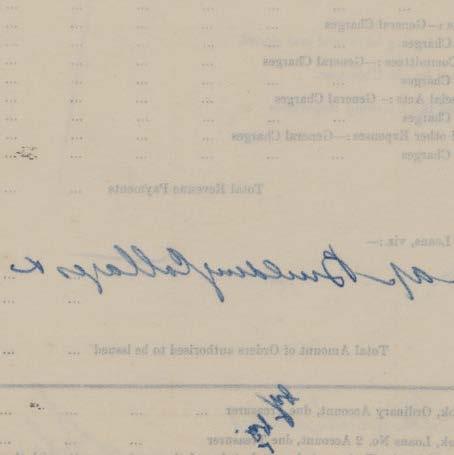 s :—General Charges ... ... ...
Charges ... ... ...
Committees :—General Charges ... ...
Charges ... ... ...
cial Acts :— General Charges ... ...
Charges ... ... ...
f other Expenses:—General Charges ... ...
Charges ... ... ...
Total Revenue Payments ... ...
Loans, viz. :—
Building Cottages
... ...
Total Amount of Orders authorised to be issued ... ...
ok, Ordinary Account, due Treasurer ... ... ...
ok, Loans No. 2 Account, due Treasurer ... ...